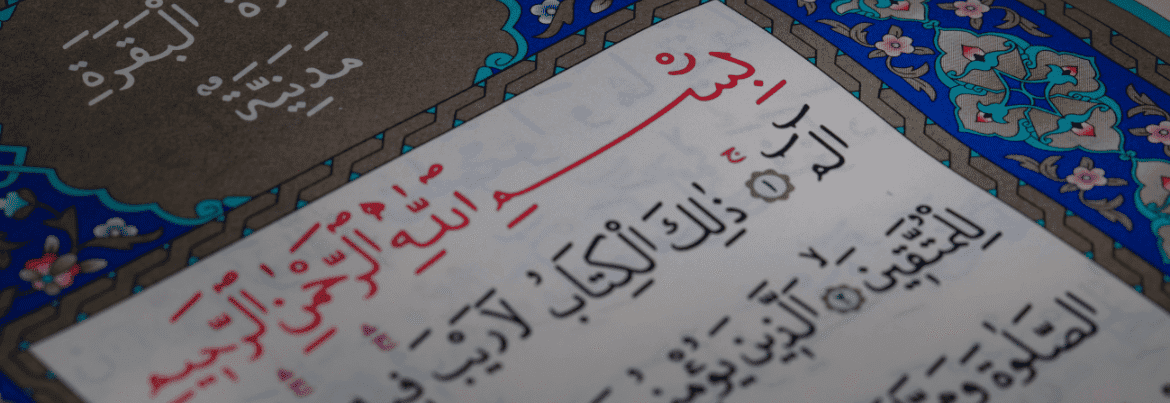 الْبَقَرَةِ
بِسْمِ اللّٰهِ الرَّحْمٰنِ الرَّحِيمِ
الٓمٓ ۚ ١ ذٰلِكَ الْكِتَابُ لَا رَيْبَ
لِلْمُتَّقِينَ ٢ الَّذِينَ
الصَّلٰوةَ